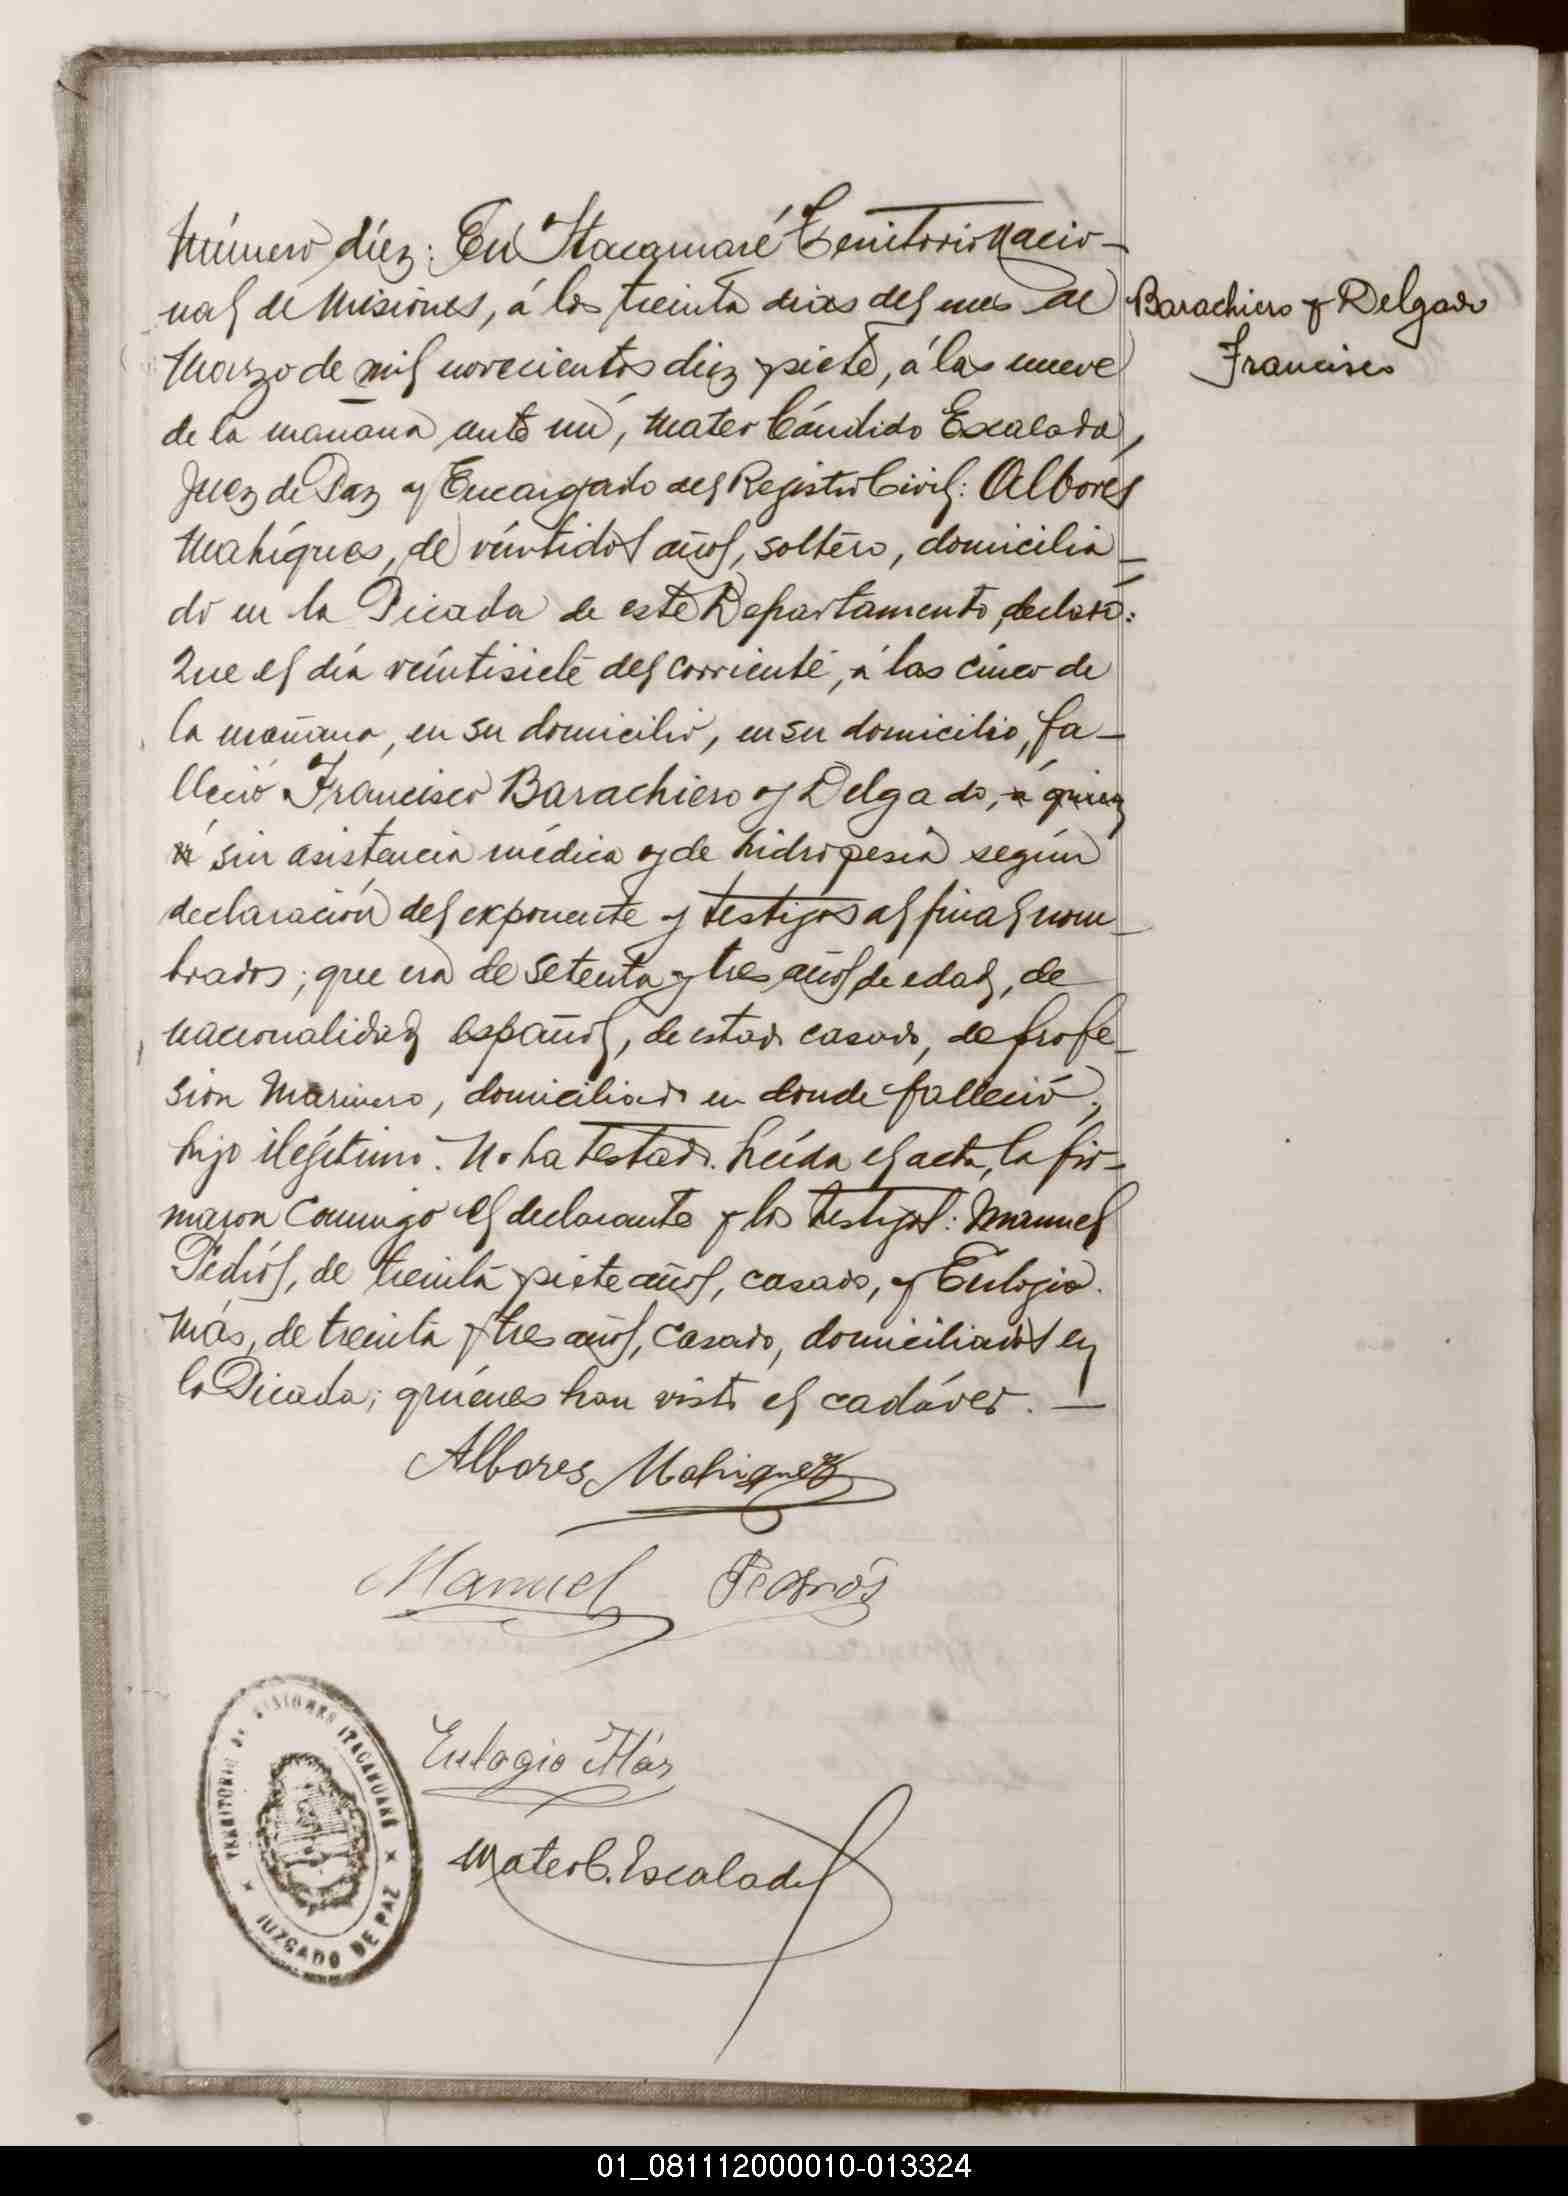 Número diez: En Itacaruaré Territorio Nacio-
nal de Misiones, á los treinta dias del mes de
Marzo de mil novecientos diez y siete, á las nueve
de la mañana ante mí, Mateo Cándido Escalada,
Juez de Paz y Encargado del Registro Civil: Albores
Mahíques, de veintidos años, soltero, domicilia-
do en la Picada de este Departamento, declaró:
Que el día veintisiete del corriente, á las cinco de
la mañana, en su domicilio, en su domicilio, fa-
lleció Francisco Barachiero y Delgado,
sin asistencia médica y de hidropesia según
declaración del exponente y testigos al final nom-
brados; que era de setenta y tres años de edad, de
nacionalidad español, de estado casado, de profe-
sion Marinero, domiciliado en donde falleció;
hijo ilegítimo. No ha testado. Leída el acta, la fir-
maron conmigo el declarante y los testigos: Manuel
Pedrós, de treinta y siete años, casado, y Eulogio
Más, de treinta y tres años, casado, domiciliados en
la Picada; quiénes han visto el cadáver. —
Albores Mahiquez
Manuel Pedrós
Eulogio Más
Mateo C. Escalada
Barachiero y Delgado
Francisco
TERRITORIO DE MISIONES ITACARUARÉ
JUZGADO DE PAZ
01_081112000010-013324